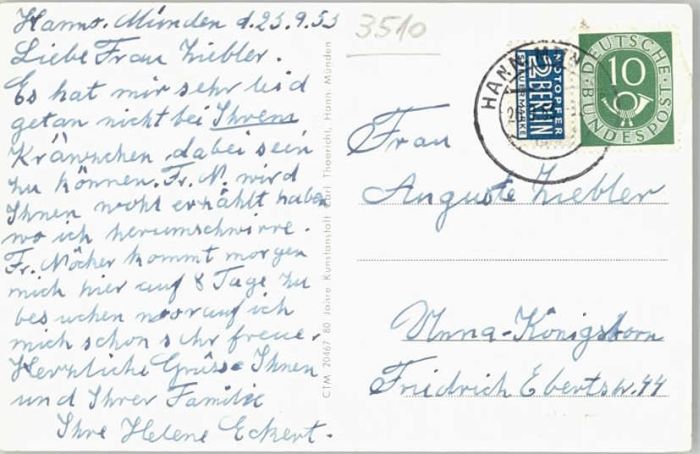 Hann. Münden d. 23.9.53
Liebe Frau Ziebler.
Es hat mir sehr leid
getan nicht bei Ihrem
Kränzchen dabei sein
zu können. Fr. M. wird
Ihnen wohl erzählt haben
wo ich herumschwirre.
Fr. Möcher kommt morgen
mich hier auf 8 Tage zu
besuchen worauf ich
mich schon sehr freue.
Herzliche Grüsse Ihnen
und Ihrer Familie
Ihre Helene Eckert.
CTM 20467 80 Jahre Kunstanstalt Carl Thoericht, Hann. Münden
3510
HANN. MÜN
NOTOPFER
2 BERLIN
STEUERMARKE
DEUTSCHE
BUNDESPOST
10
Frau
Auguste Ziebler
Unna-Königsborn
Friedrich Ebertstr. 44